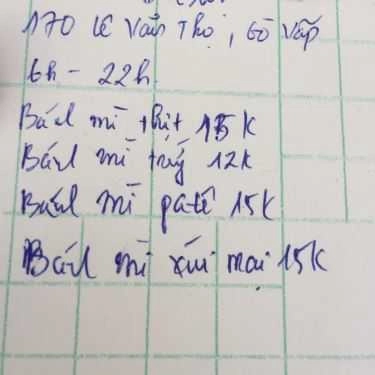 170 Lê Văn Thọ, Gò Vấp
6h - 22h
Bánh mì thịt 15K
Bánh mì trứng 12K
Bánh mì patê 15K
Bánh mì xíu mại 15K